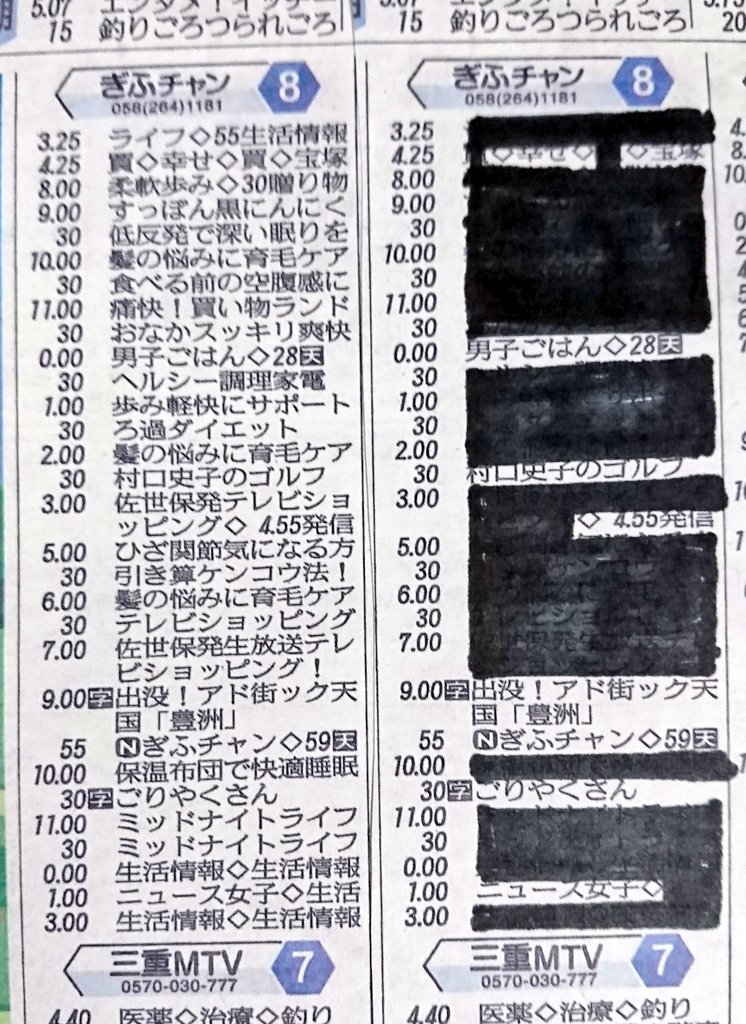 5.07
15 釣りごろつられごろ
ぎふチャン 8
058(264)1181
3.25 ライフ◇55生活情報
4.25 買◇幸せ◇買◇宝塚
8.00 柔軟歩み◇30贈り物
9.00 すっぽん黒にんにく
30 低反発で深い眠りを
10.00 髪の悩みに育毛ケア
30 食べる前の空腹感に
11.00 痛快！買い物ランド
30 おなかスッキリ爽快
0.00 男子ごはん◇28天
30 ヘルシー調理家電
1.00 歩み軽快にサポート
30 ろ過ダイエット
2.00 髪の悩みに育毛ケア
30 村口史子のゴルフ
3.00 佐世保発テレビショ
ッピング◇ 4.55発信
5.00 ひざ関節気になる方
30 引き算ケンコウ法！
6.00 髪の悩みに育毛ケア
30 テレビショッピング
7.00 佐世保発生放送テレ
ビショッピング！
9.00字出没！アド街ック天
国「豊洲」
55 Nぎふチャン◇59天
10.00 保温布団で快適睡眠
30字ごりやくさん
11.00 ミッドナイトライフ
30 ミッドナイトライフ
0.00 生活情報◇生活情報
1.00 ニュース女子◇生活
3.00 生活情報◇生活情報
三重MTV 7
0570-030-777
4.40 医薬◇治療◇釣り
15 釣りごろつられごろ
20
ぎふチャン 8
058(264)1181
3.25
4.25 買◇幸せ◇ ◇宝塚
8.00
9.00
30
10.00
30
11.00
30
0.00 男子ごはん◇28天
30
1.00
30
2.00
30 村口史子のゴルフ
3.00
◇ 4.55発信
5.00
30
6.00
30
7.00
9.00字出没！アド街ック天
国「豊洲」
55 Nぎふチャン◇59天
10.00
30字ごりやくさん
11.00
30
0.00
1.00 ニュース女子◇
3.00
三重MTV 7
0570-030-777
4.40 医薬◇治療◇釣り